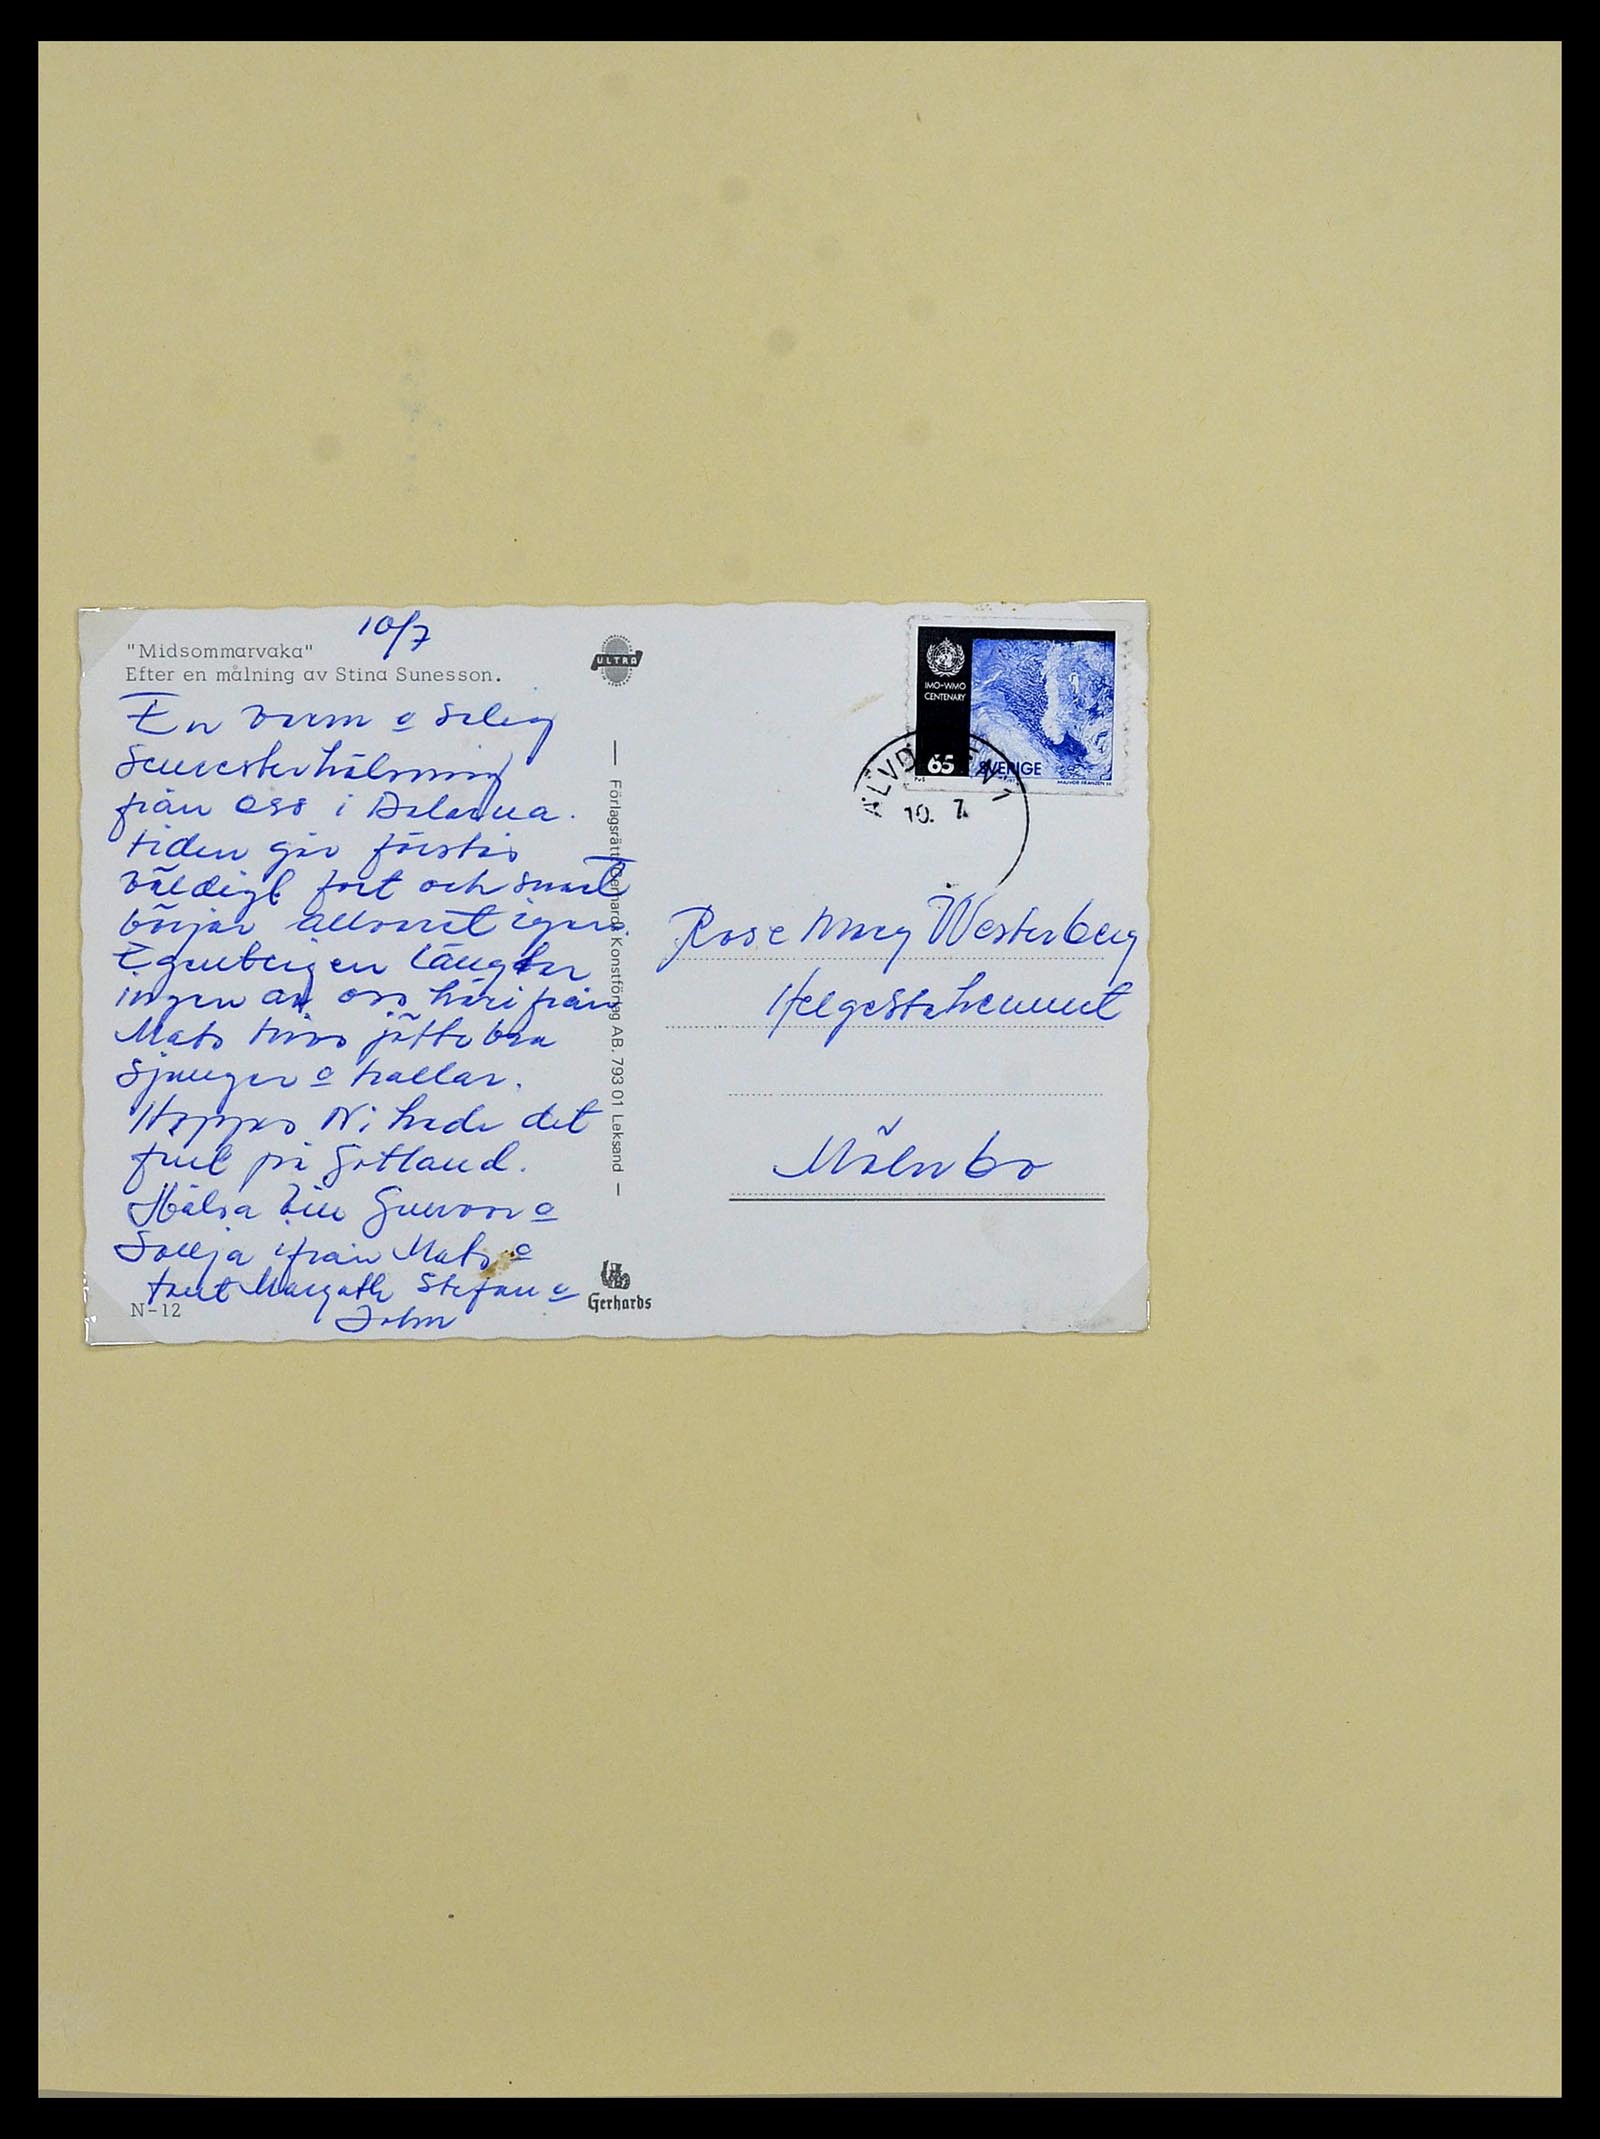 10/7
"Midsommarvaka"
Efter en målning av Stina Sunesson.
En varm o solig
Semesterhälsning
från oss i Dalarna.
tiden går förstås
väldigt fort och snart
börjar allvaret igen.
Egentligen längtar
ingen av oss härifrån
Mats trivs jättebra
Sjunger o trallar.
Hoppas Ni hade det
fint på Gotland.
Hälsa
från Mats o
Margareth Stefan o
John
N-12
ULTRA
— Förlagsrätt: Gerhards Konstförlag AB. 793 01 Leksand —
Gerhards
IMO-WMO
CENTENARY
65 SVERIGE
MAJVOR FRANZÉN
ÄLVD EN 1
10. 7.
Rose Mary Westerberg
Helgestahemmet
Mölnbo